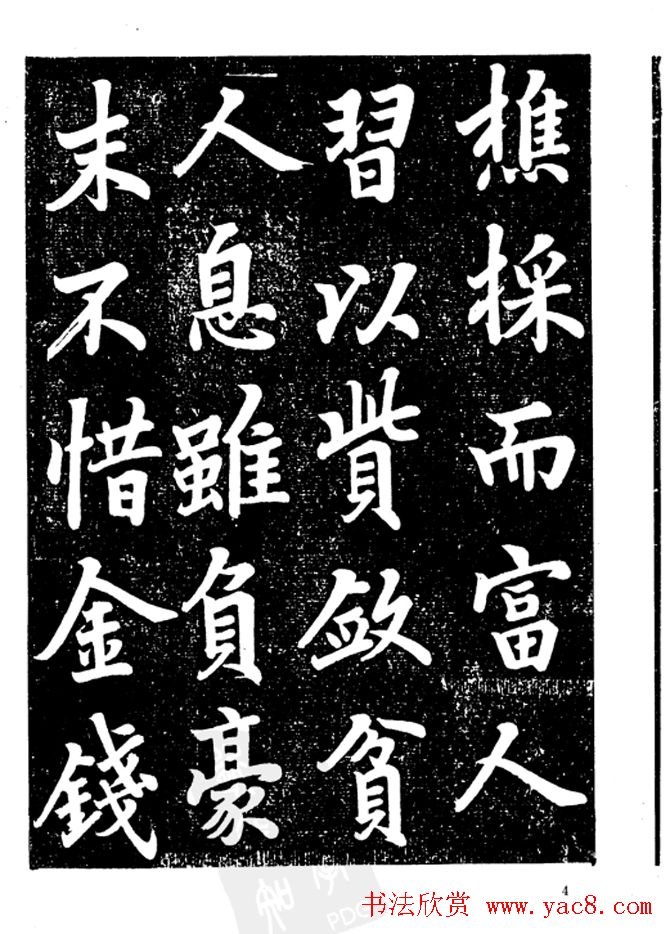 樵採而富人
習以貲斂貧
人息雖負豪
末不惜金錢
4
书法欣赏 www.yac8.com
PDG